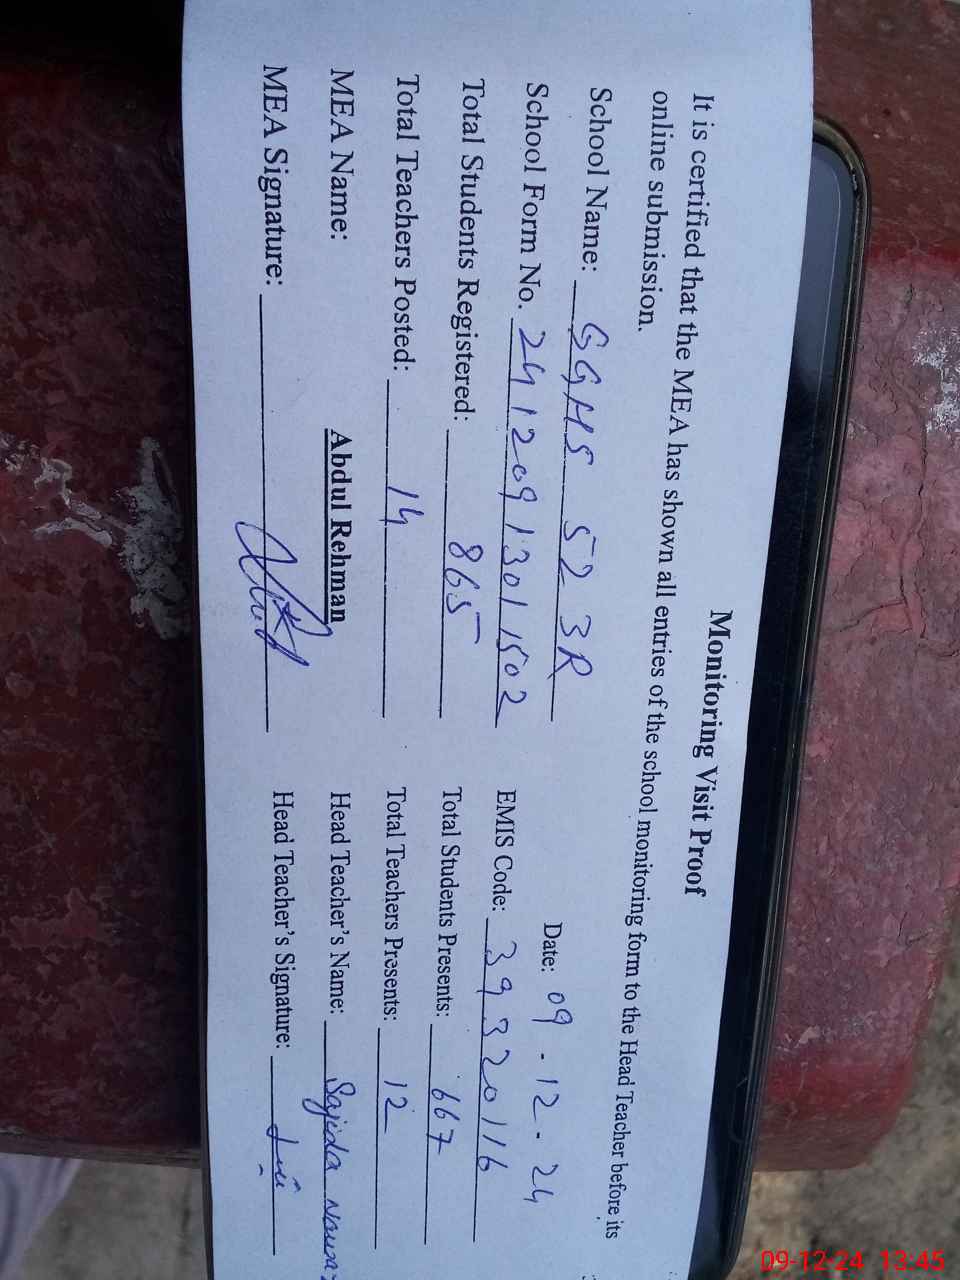 Monitoring Visit Proof
It is certified that the MEA has shown all entries of the school monitoring form to the Head Teacher before its
online submission.
School Name: GGHS 52 3R Date: 09-12-24
School Form No. 2412091301502 EMIS Code: 39320116
Total Students Registered: 865 Total Students Presents: 667
Total Teachers Posted: 14 Total Teachers Presents: 12
MEA Name: Abdul Rehman Head Teacher's Name: Sajida
MEA Signature: Head Teacher's Signature:
09-12-24 13:45